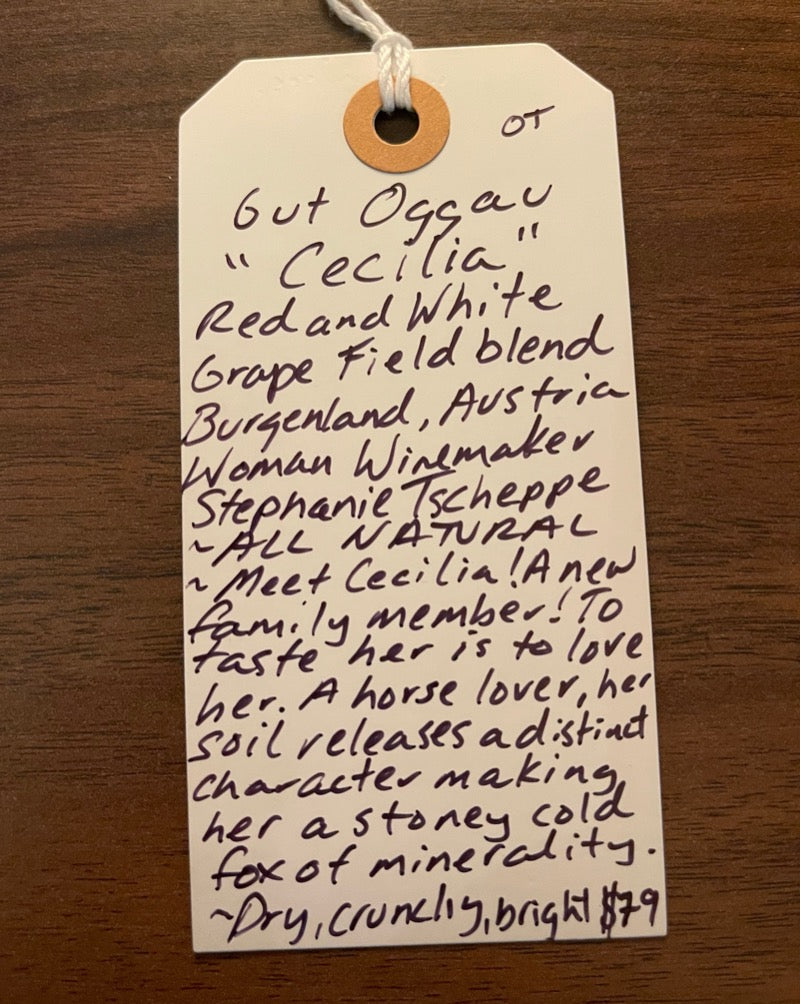 OT
Gut Oggau
"Cecilia"
Red and White
Grape Field blend
Burgenland, Austria
Woman Winemaker
Stephanie Tscheppe
~ALL NATURAL
~Meet Cecilia! A new
family member! To
taste her is to love
her. A horse lover, her
soil releases a distinct
character making
her a stoney cold
fox of minerality.
~Dry, crunchy, bright $79